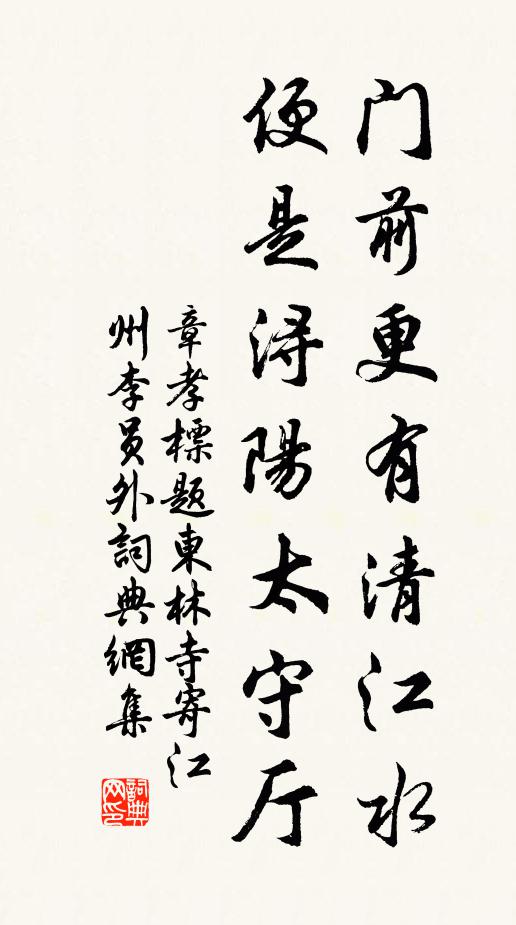 门前更有清江水
便是浔陽太守厅
章孝標题東林寺寄江
州李员外詞典網集
詞典
网印